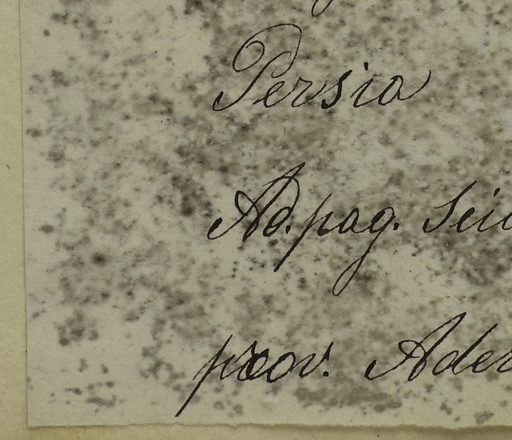 Persia
Ad. pag. Sei
prov. Ader